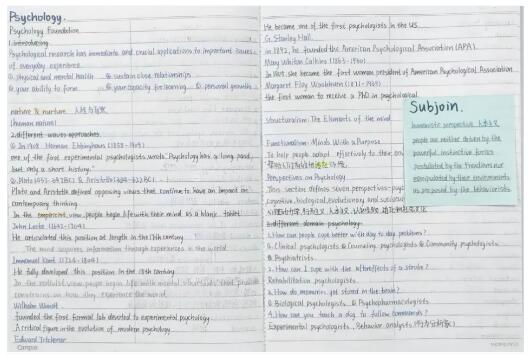 Psychology.
Psychology Foundation
1. introducing
Psychological research has immediate and crucial applications to important issues
of everyday experience.
① physical and mental health ② sustain close relationships
③ your ability to form ④ your capacity for learning ⑤ personal growth
nature & nurture
(human nature)
2. different waves approaches.
① In 1908. Herman Ebbinghaus (1850-1909)
one of the first experimental psychologists wrote "Psychology has a long past,
but only a short history."
② Plato (427-347BC) & Aristotle (384-322BC)
Plato and Aristotle defined opposing views that continue to have an impact on
contemporary thinking
In the empiricist view, people begin life with their mind as a blank tablet
John Locke (1632-1704)
He articulated this position at length in the 17th century
The mind acquires information through experiences in the world
Immanuel Kant (1724-1804)
He fully developed this position in the 18th century
In the nativist view people begin life with mental structures that provide
constrains on how they experience the world.
Wilhelm Wundt
founded the first formal lab devoted to experimental psychology
A critical figure in the evolution of modern psychology
Edward Titchener
Campus
He became one of the first psychologists in the US
G. Stanley Hall
in 1892, he founded the American Psychological Association (APA)
Mary Whiton Calkins (1863-1930)
In 1905 she became the first woman president of American Psychological Association
Margaret Floy Washburn (1871-1939)
the first woman to receive a PhD in psychological
Structuralism: The Elements of the mind
Functionalism: Minds With a Purpose
To help people adapt effectively to their
Perspectives on Psychology
This section defines seven perspectives - psy
cognitive, biological, evolutionary and socioc
3. different domain psychology.
1. How can people cope better with day to day problems?
① Clinical psychologists ② Counseling psychologists ③ Community psychologists
④ Psychiatrists
2. How can I cope with the aftereffects of a stroke?
Rehabilitation psychologists
3. How do memories get stored in the brain?
① Biological psychologists ② Psychopharmacologists
4. How can you teach a dog to follow commands?
Experimental psychologists, Behavior analysts
Subjoin.
humanistic perspective 人本主义
people are neither driven by the
powerful, instinctive forces
postulated by the Freudians nor
manipulated by their environments
as proposed by the behaviorists.